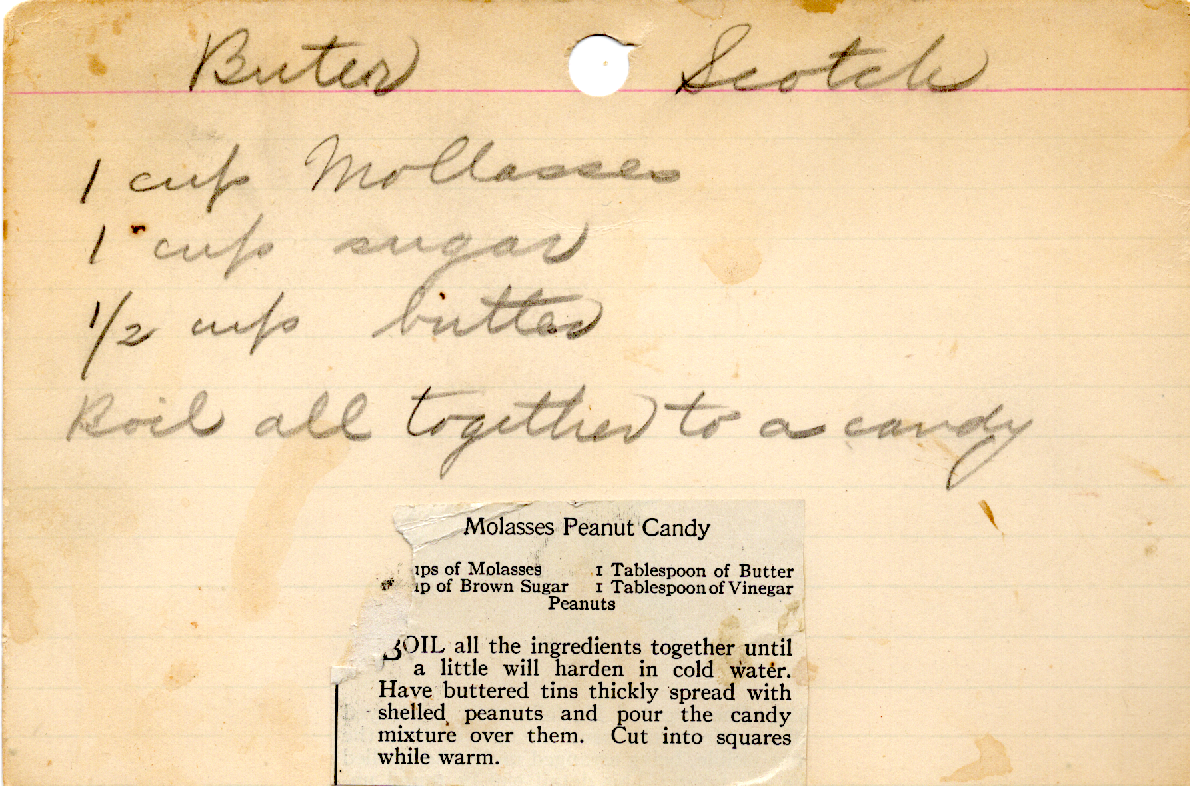 Buter Scotch
1 cup Mollasses
1 cup sugar
1/2 cup butter
Boil all together to a candy
Molasses Peanut Candy
ups of Molasses 1 Tablespoon of Butter
up of Brown Sugar 1 Tablespoon of Vinegar
Peanuts
BOIL all the ingredients together until
a little will harden in cold water.
Have buttered tins thickly spread with
shelled peanuts and pour the candy
mixture over them. Cut into squares
while warm.